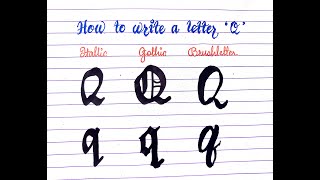 How to write a letter 'Q'
Itallic Gothic Brushletter
Q Q Q
q q q